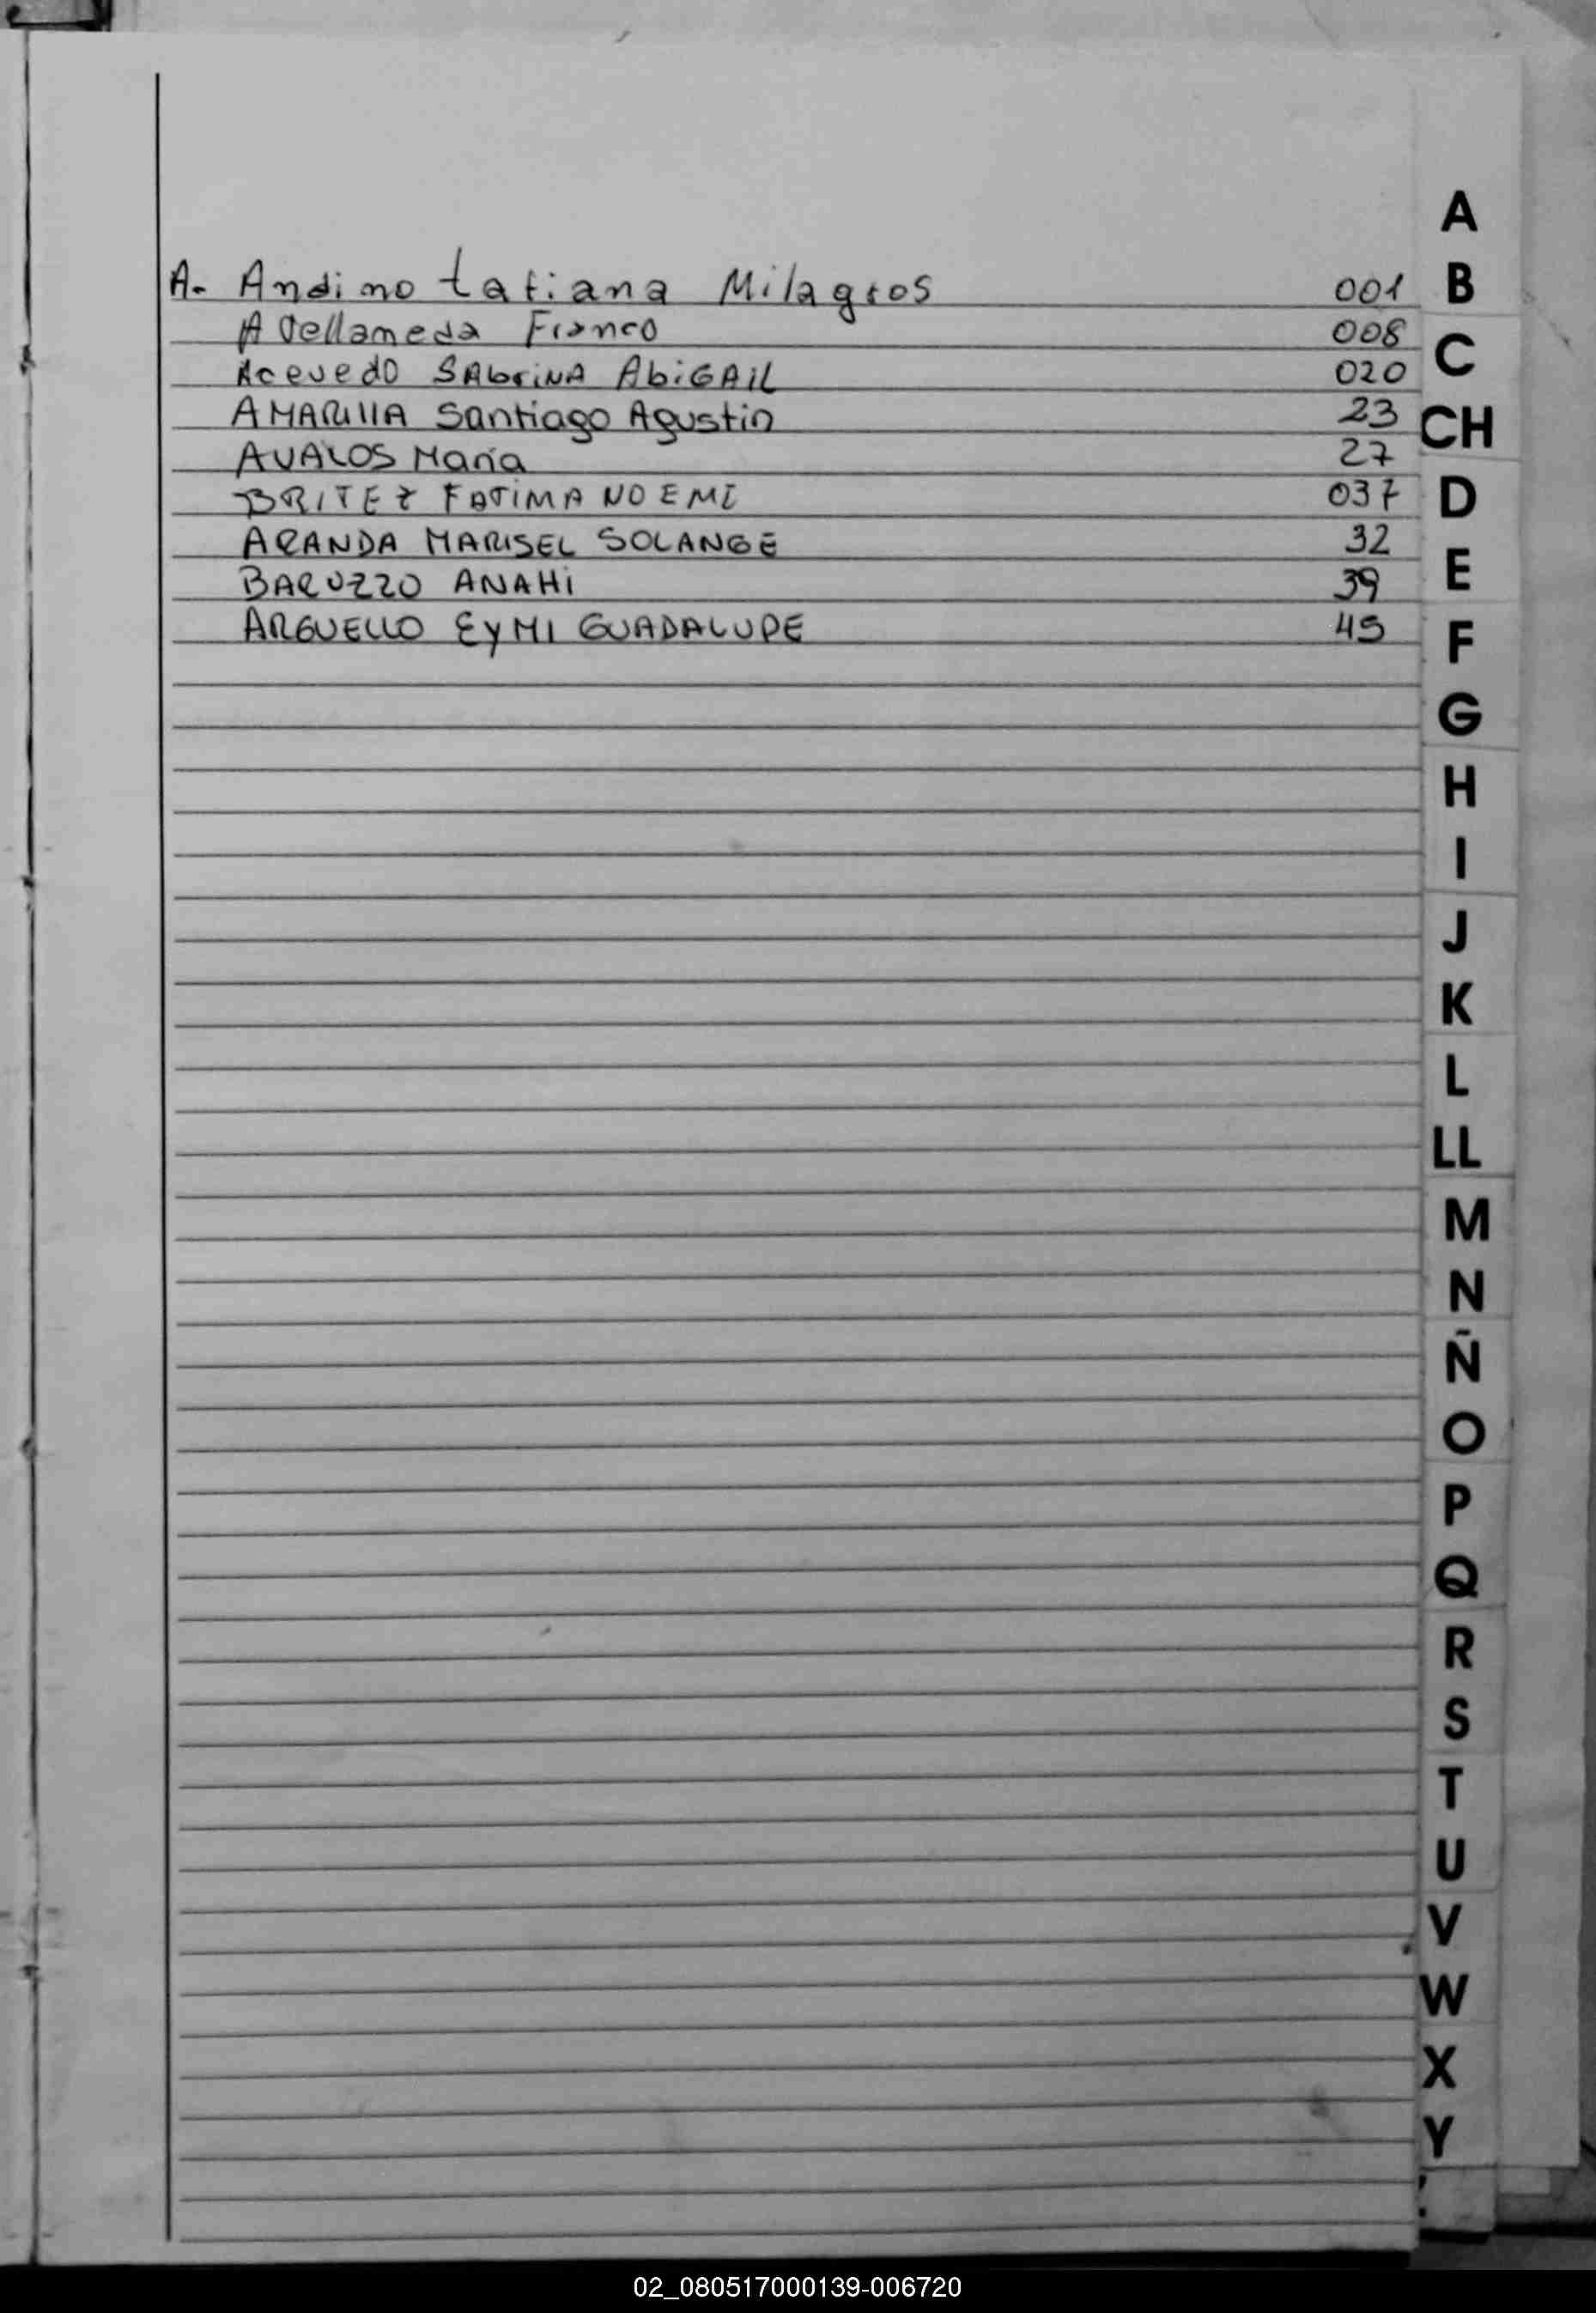 A
A- Andino tatiana Milagros 001 B
Avellameda Franco 008
C
Acevedo SAbrinA AbiGAil 020
AMARIllA Santiago Agustin 23 CH
AVALOS María 27
BRITEZ FATIMA NOEMI 037 D
ARANDA MARISEL SOLANGE 32
BARUZZO ANAHi 39 E
ARGUELLO EyMI GUADALUPE 45 F
G
H
I
J
K
L
LL
M
N
Ñ
O
P
Q
R
S
T
U
V
W
X
Y
02_080517000139-006720